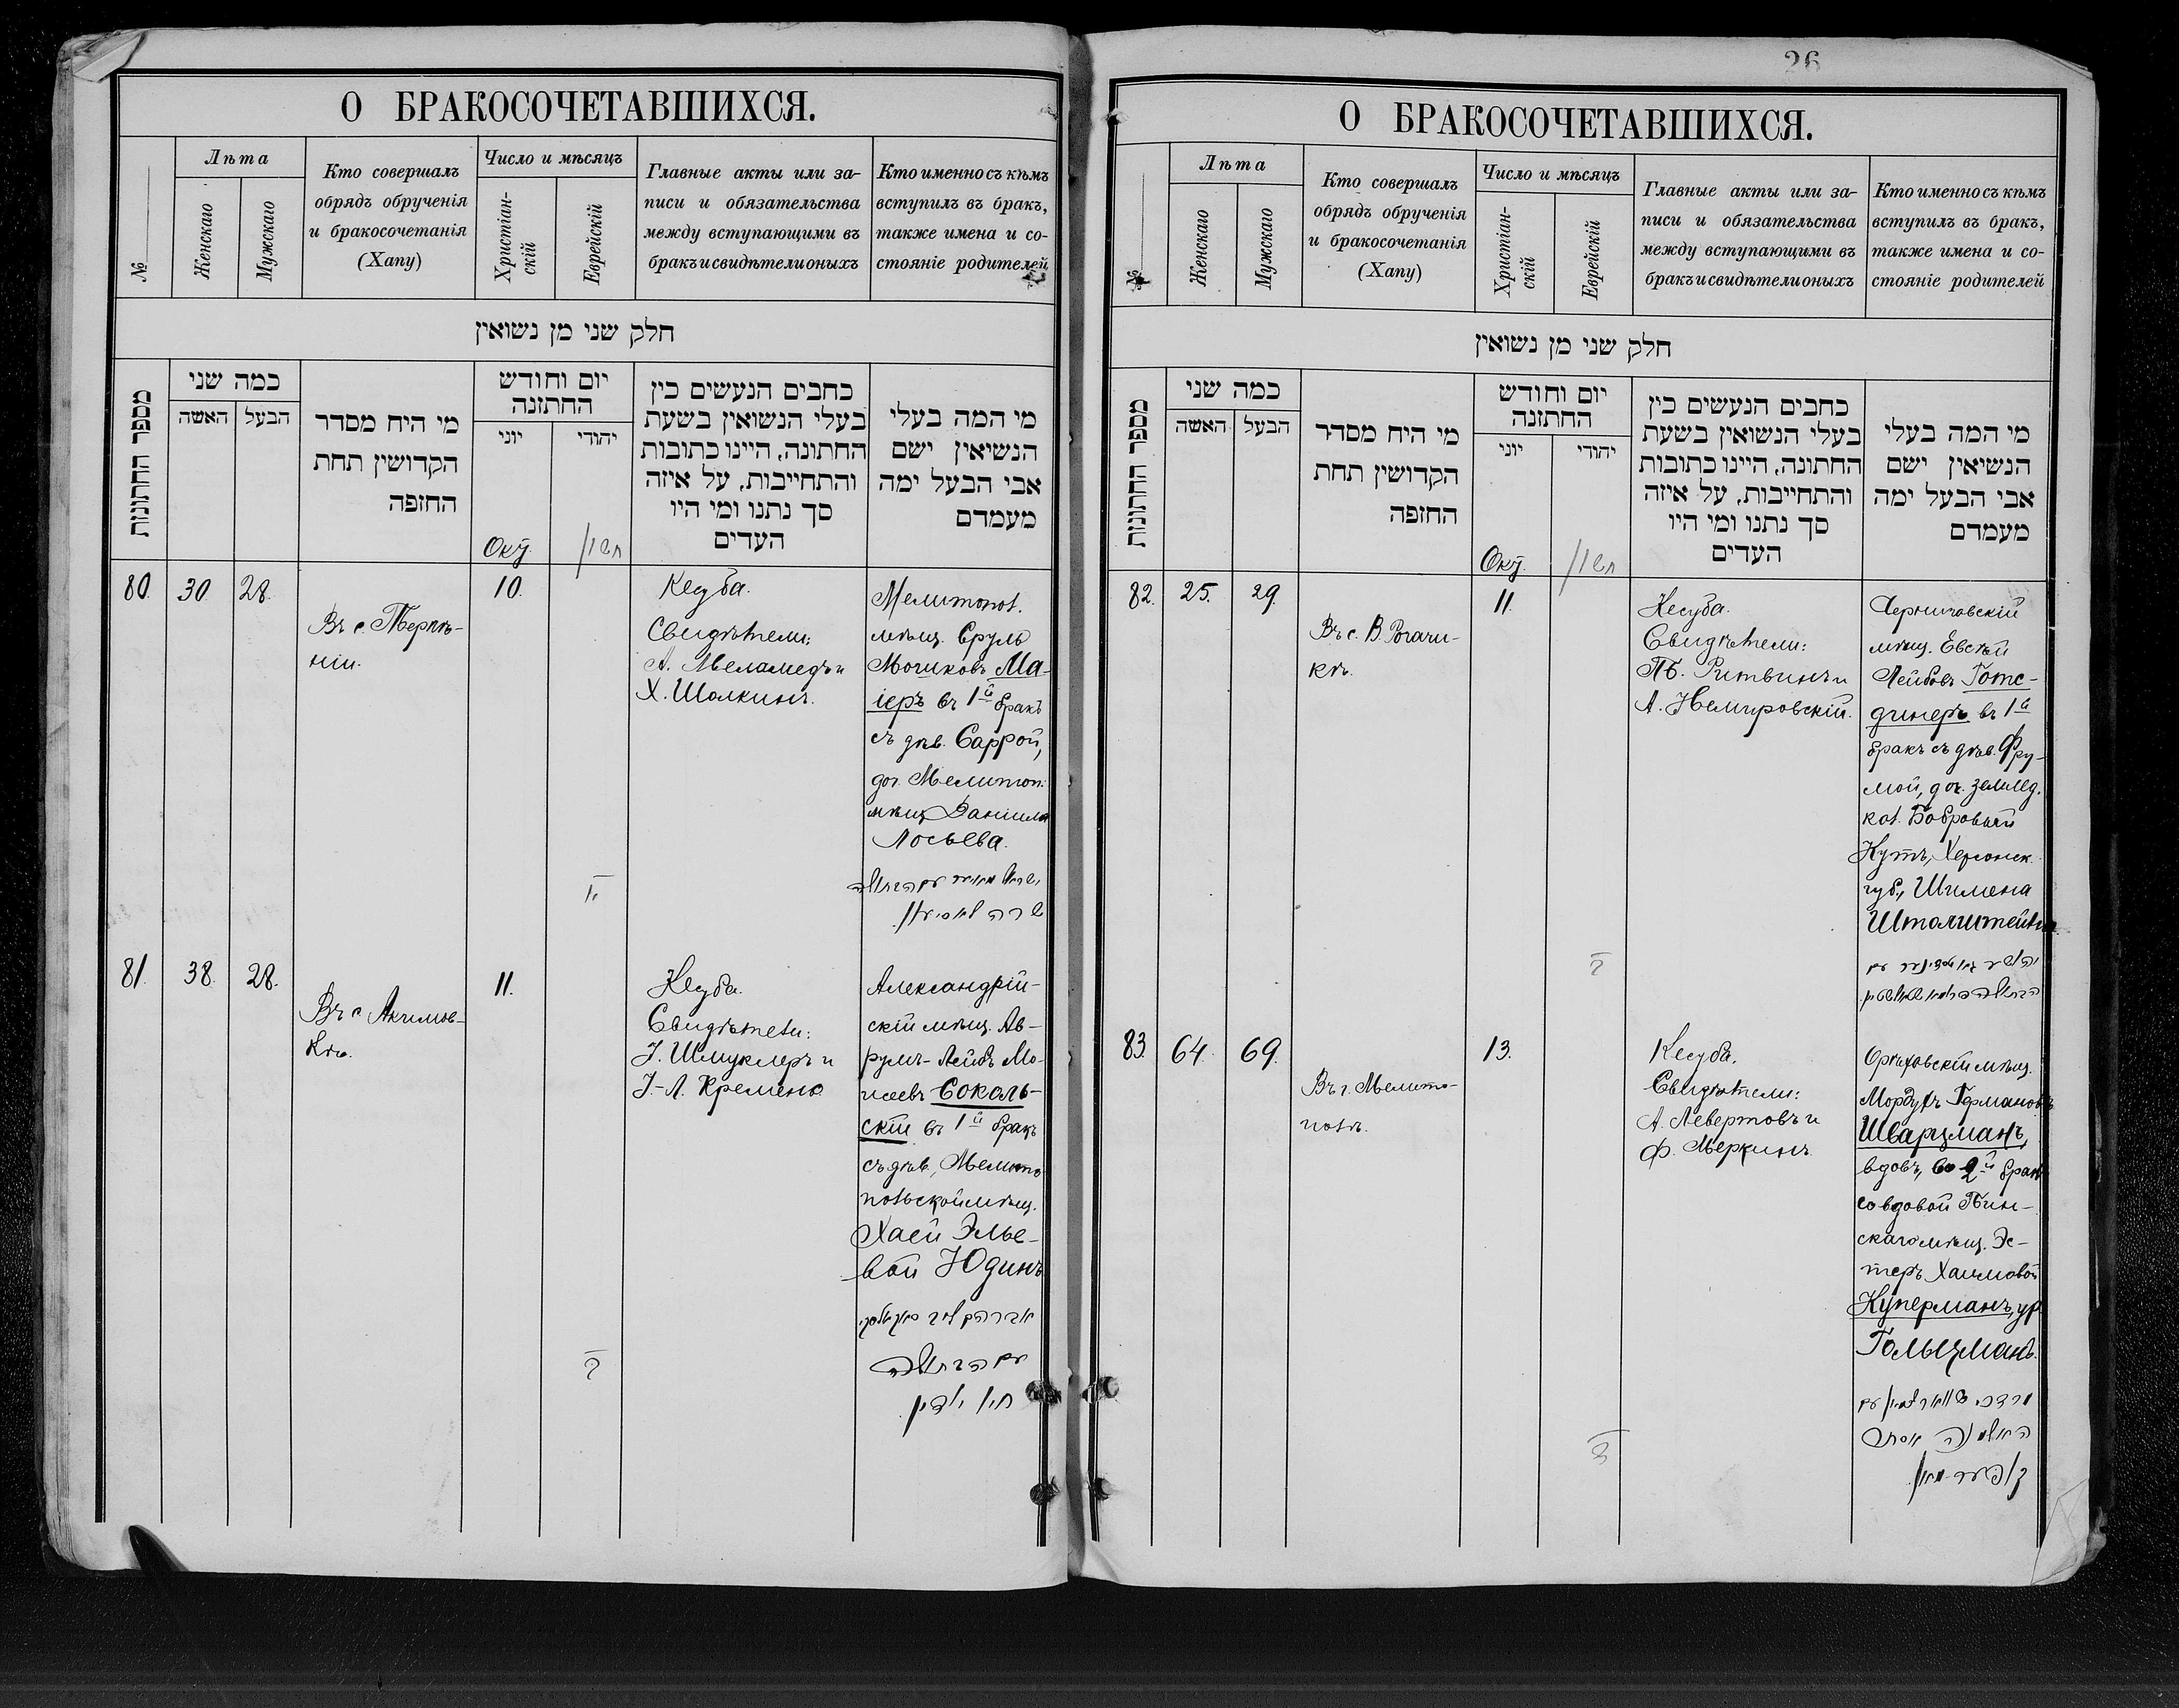 26
О БРАКОСОЧЕТАВШИХСЯ.
№
Лѣта
Женскаго
Мужскаго
Кто совершалъ
обрядъ обрученія
и бракосочетанія
(Хапу)
Число и мѣсяцъ
Христіан-
скій
Еврейскій
Главные акты или за-
писи и обязательства
между вступающими въ
бракъ и свидѣтели оныхъ
Кто именно съ кѣмъ
вступилъ въ бракъ,
также имена и со-
стояніе родителей
חלק שני מן נשואין
מספר החתונות
כמה שני
האשה
הבעל
מי היח מסדר
הקדושין תחת
החזפה
יום וחודש
החתזנה
יוני
יהודי
כחבים הנעשים כין
בעלי הנשואין בשעת
החתונה, היינו כתובות
והתחייבות, על איזה
סך נתנו ומי היו
העדים
מי המה בעלי
הנשיאין ישם
אבי הבעל ימה
מעמדם
Окт.
80.
30.
28.
Въ с. Терпѣ-
ніи.
10.
Кесуба.
Свидѣтели:
А. Меламедъ и
Х. Шолкинъ.
Мелитопол.
мѣщ. Сруль
Мошковъ Ма-
іеръ въ 1й бракъ
съ дѣв. Саррой,
доч. Мелитоп.
мѣщ. Даніила
Лосьева.
81.
38.
28.
Въ с. Акимов-
кѣ.
11.
Кесуба.
Свидѣтели:
І. Шмуклеръ и
І.-Л. Кремень
Александрій-
скій мѣщ. Ав-
румъ-Лейбъ Мо-
исеевъ Соколь-
скій въ 1й бракъ
съ дѣв., Мелито
польской мѣщ.
Хаей Элье-
вой Юдинъ
אברהם ליב סאקאלסקי
עם הבתולה
חיה יודין
О БРАКОСОЧЕТАВШИХСЯ.
№
Лѣта
Женскаго
Мужскаго
Кто совершалъ
обрядъ обрученія
и бракосочетанія
(Хапу)
Число и мѣсяцъ
Христіан-
скій
Еврейскій
Главные акты или за-
писи и обязательства
между вступающими въ
бракъ и свидѣтели оныхъ
Кто именно съ кѣмъ
вступилъ въ бракъ,
также имена и со-
стояніе родителей
חלק שני מן נשואין
מספר החתונות
כמה שני
האשה
הבעל
מי היח מסדר
הקדושין תחת
החזפה
יום וחודש
החתזנה
יוני
יהודי
כחבים הנעשים כין
בעלי הנשואין בשעת
החתונה, היינו כתובות
והתחייבות, על איזה
סך נתנו ומי היו
העדים
מי המה בעלי
הנשיאין ישם
אבי הבעל ימה
מעמדם
Окт.
82.
25.
29.
Въ с. В. Рогачи-
кѣ.
11.
Кесуба.
Свидѣтели:
Ритвинъ и
А. Немировскій.
мѣщ. Евсѣй
Лейбовъ Готс-
динеръ въ 1й
бракъ съ дѣв. Фру-
мой, доч. землед.
кол. Бобровый
Кутъ, Херсонск.
губ., Шимена
Штольштейна.
83.
64.
69.
Въ г. Мелито-
полѣ.
13.
Кесуба.
Свидѣтели:
А. Левертовъ и
Ф. Меркинъ
Орѣховскій мѣщ.
Мордухъ Германовъ
Шварцманъ,
вдовъ, во 2й бракъ
со вдовой Пин-
скаго мѣщ. Эс-
теръ Хаимовой
Куперманъ, ур.
Гольцманъ.
מרדכי שווארצמאן עם
האלמנה אסתר
קופערמאן